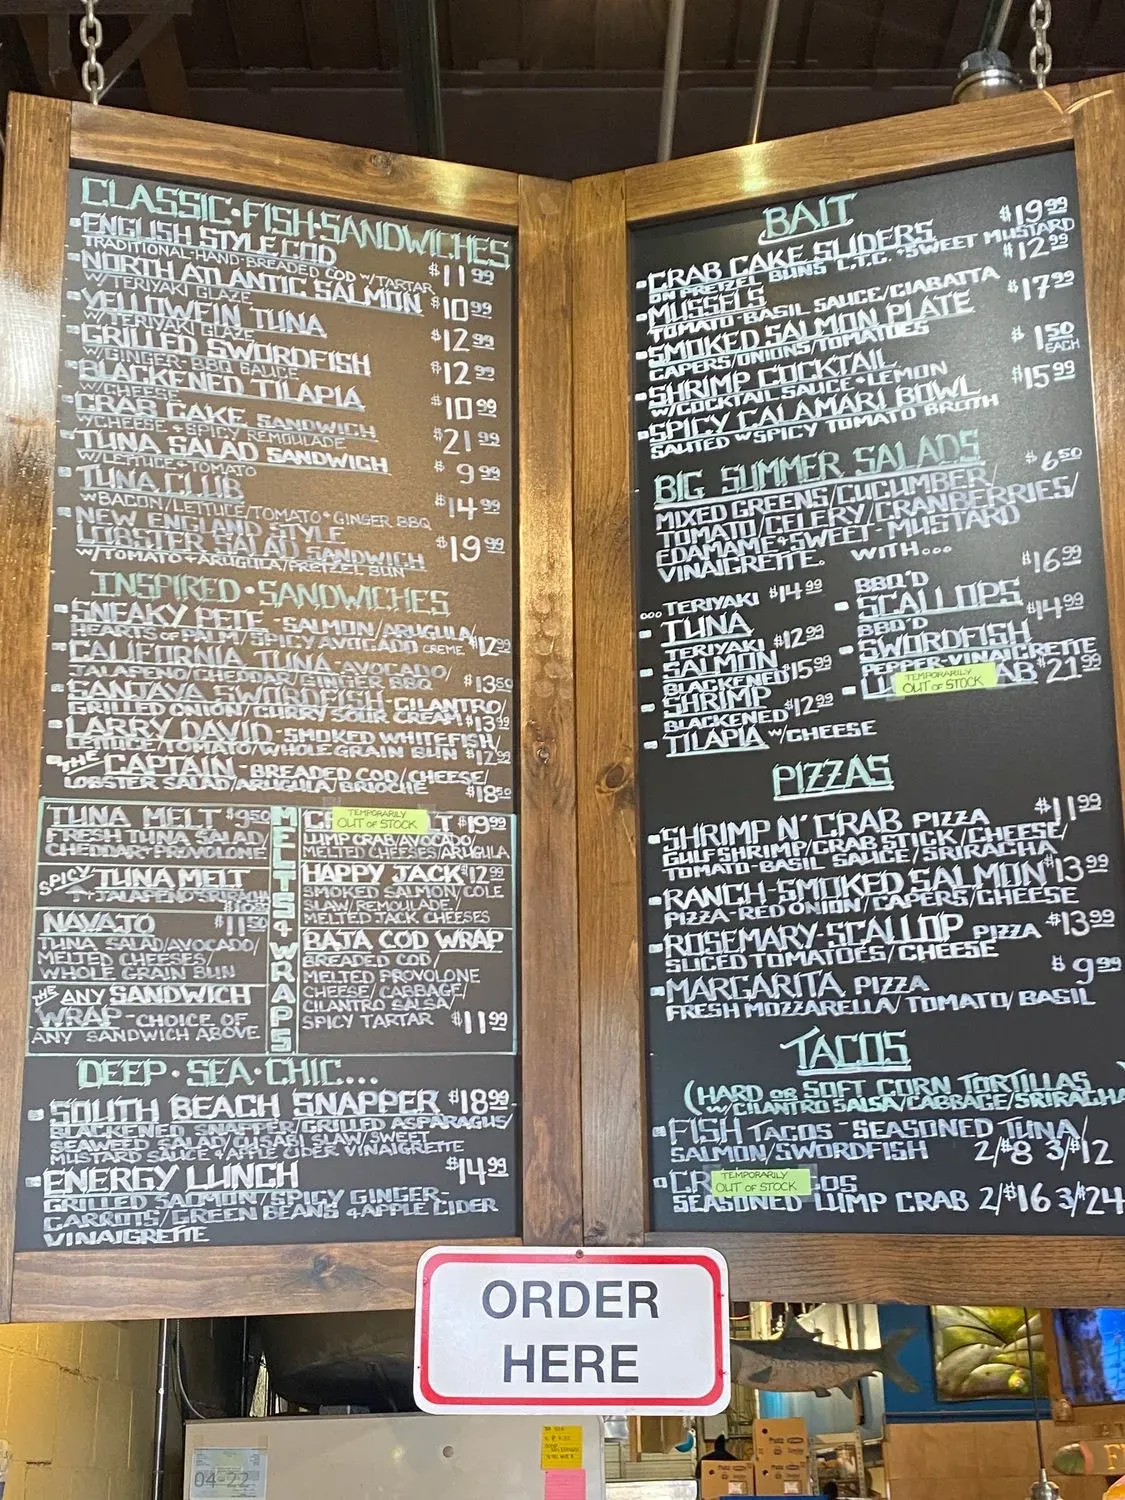 CLASSIC·FISH·SANDWICHES
ENGLISH STYLE COD
TRADITIONAL-HAND-BREADED COD W/TARTAR $11 99
NORTH ATLANTIC SALMON
W/TERIYAKI GLAZE $10 99
YELLOWFIN TUNA
W/TERIYAKI GLAZE $12 99
GRILLED SWORDFISH
W/GINGER-BBQ SAUCE $12 99
BLACKENED TILAPIA
W/CHEESE $10 99
CRAB CAKE SANDWICH
W/CHEESE & SPICY REMOULADE $21 99
TUNA SALAD SANDWICH
W/LETTUCE & TOMATO $9 99
TUNA CLUB
W/BACON/LETTUCE/TOMATO & GINGER BBQ $14 99
NEW ENGLAND STYLE
LOBSTER SALAD SANDWICH $19 99
W/TOMATO & ARUGULA/PRETZEL BUN
INSPIRED·SANDWICHES
SNEAKY PETE - SALMON/ARUGULA/
HEARTS OF PALM/SPICY AVOCADO CREME $12 99
CALIFORNIA TUNA - AVOCADO/
JALAPENO/CHEDDAR/GINGER BBQ $13 50
SANTAVA SWORDFISH - CILANTRO/
GRILLED ONION/CURRY SOUR CREAM $13 99
LARRY DAVID - SMOKED WHITEFISH/
LETTUCE/TOMATO/WHOLE GRAIN BUN $12 99
THE CAPTAIN - BREADED COD/CHEESE/
LOBSTER SALAD/ARUGULA/BRIOCHE $18 50
MELTS & WRAPS
TUNA MELT $9 50
FRESH TUNA SALAD/
CHEDDAR-PROVOLONE
SPICY TUNA MELT
+JALAPENO SRIRACHA
NAVAJO $11 50
TUNA SALAD/AVOCADO/
MELTED CHEESES/
WHOLE GRAIN BUN
THE ANY SANDWICH
WRAP - CHOICE OF
ANY SANDWICH ABOVE
TEMPORARILY
OUT OF STOCK
$19 99
LUMP CRAB/AVOCADO/
MELTED CHEESES/ARUGULA
HAPPY JACK $12 99
SMOKED SALMON/COLE
SLAW/REMOULADE/
MELTED JACK CHEESES
BAJA COD WRAP
BREADED COD/
MELTED PROVOLONE
CHEESE/CABBAGE/
CILANTRO SALSA/
SPICY TARTAR $11 99
DEEP·SEA·CHIC...
SOUTH BEACH SNAPPER $18 99
BLACKENED SNAPPER/GRILLED ASPARAGUS/
SEAWEED SALAD/CUSABI SLAW/SWEET
MUSTARD SAUCE & APPLE CIDER VINAIGRETTE
ENERGY LUNCH $14 99
GRILLED SALMON/SPICY GINGER-
CARROTS/GREEN BEANS & APPLE CIDER
VINAIGRETTE
BAIT
CRAB CAKE SLIDERS $19 99
ON PRETZEL BUNS C.T.C. & SWEET MUSTARD
MUSSELS $12 99
TOMATO-BASIL SAUCE/CIABATTA
SMOKED SALMON PLATE $17 99
CAPERS/ONIONS/TOMATOES
SHRIMP COCKTAIL $1 50 EACH
W/COCKTAIL SAUCE & LEMON
SPICY CALAMARI BOWL $15 99
SAUTED W/SPICY TOMATO BROTH
BIG SUMMER SALADS $6 50
MIXED GREENS/CUCUMBER/
TOMATO/CELERY/CRANBERRIES/
EDAMAME & SWEET-MUSTARD
VINAIGRETTE. WITH...
...TERIYAKI $14 99
TUNA
TERIYAKI $12 99
SALMON
BLACKENED $15 99
SHRIMP
BLACKENED $12 99
TILAPIA W/CHEESE
BBQ'D $16 99
SCALLOPS
BBQ'D $14 99
SWORDFISH
PEPPER-VINAIGRETTE
AB $21 99
TEMPORARILY
OUT OF STOCK
PIZZAS
SHRIMP N' CRAB PIZZA $11 99
GULF SHRIMP/CRAB STICK/CHEESE/
TOMATO-BASIL SAUCE/SRIRACHA
RANCH-SMOKED SALMON $13 99
PIZZA-RED ONION/CAPERS/CHEESE
ROSEMARY-SCALLOP PIZZA $13 99
SLICED TOMATOES/CHEESE
MARGARITA PIZZA $9 99
FRESH MOZZARELLA/TOMATO/BASIL
TACOS
(HARD OR SOFT CORN TORTILLAS
W/CILANTRO SALSA/CABBAGE/SRIRACHA)
FISH TACOS - SEASONED TUNA/
SALMON/SWORDFISH 2/$8 3/$12
CR OS
TEMPORARILY
OUT OF STOCK
SEASONED LUMP CRAB 2/$16 3/$24
ORDER
HERE
04-22